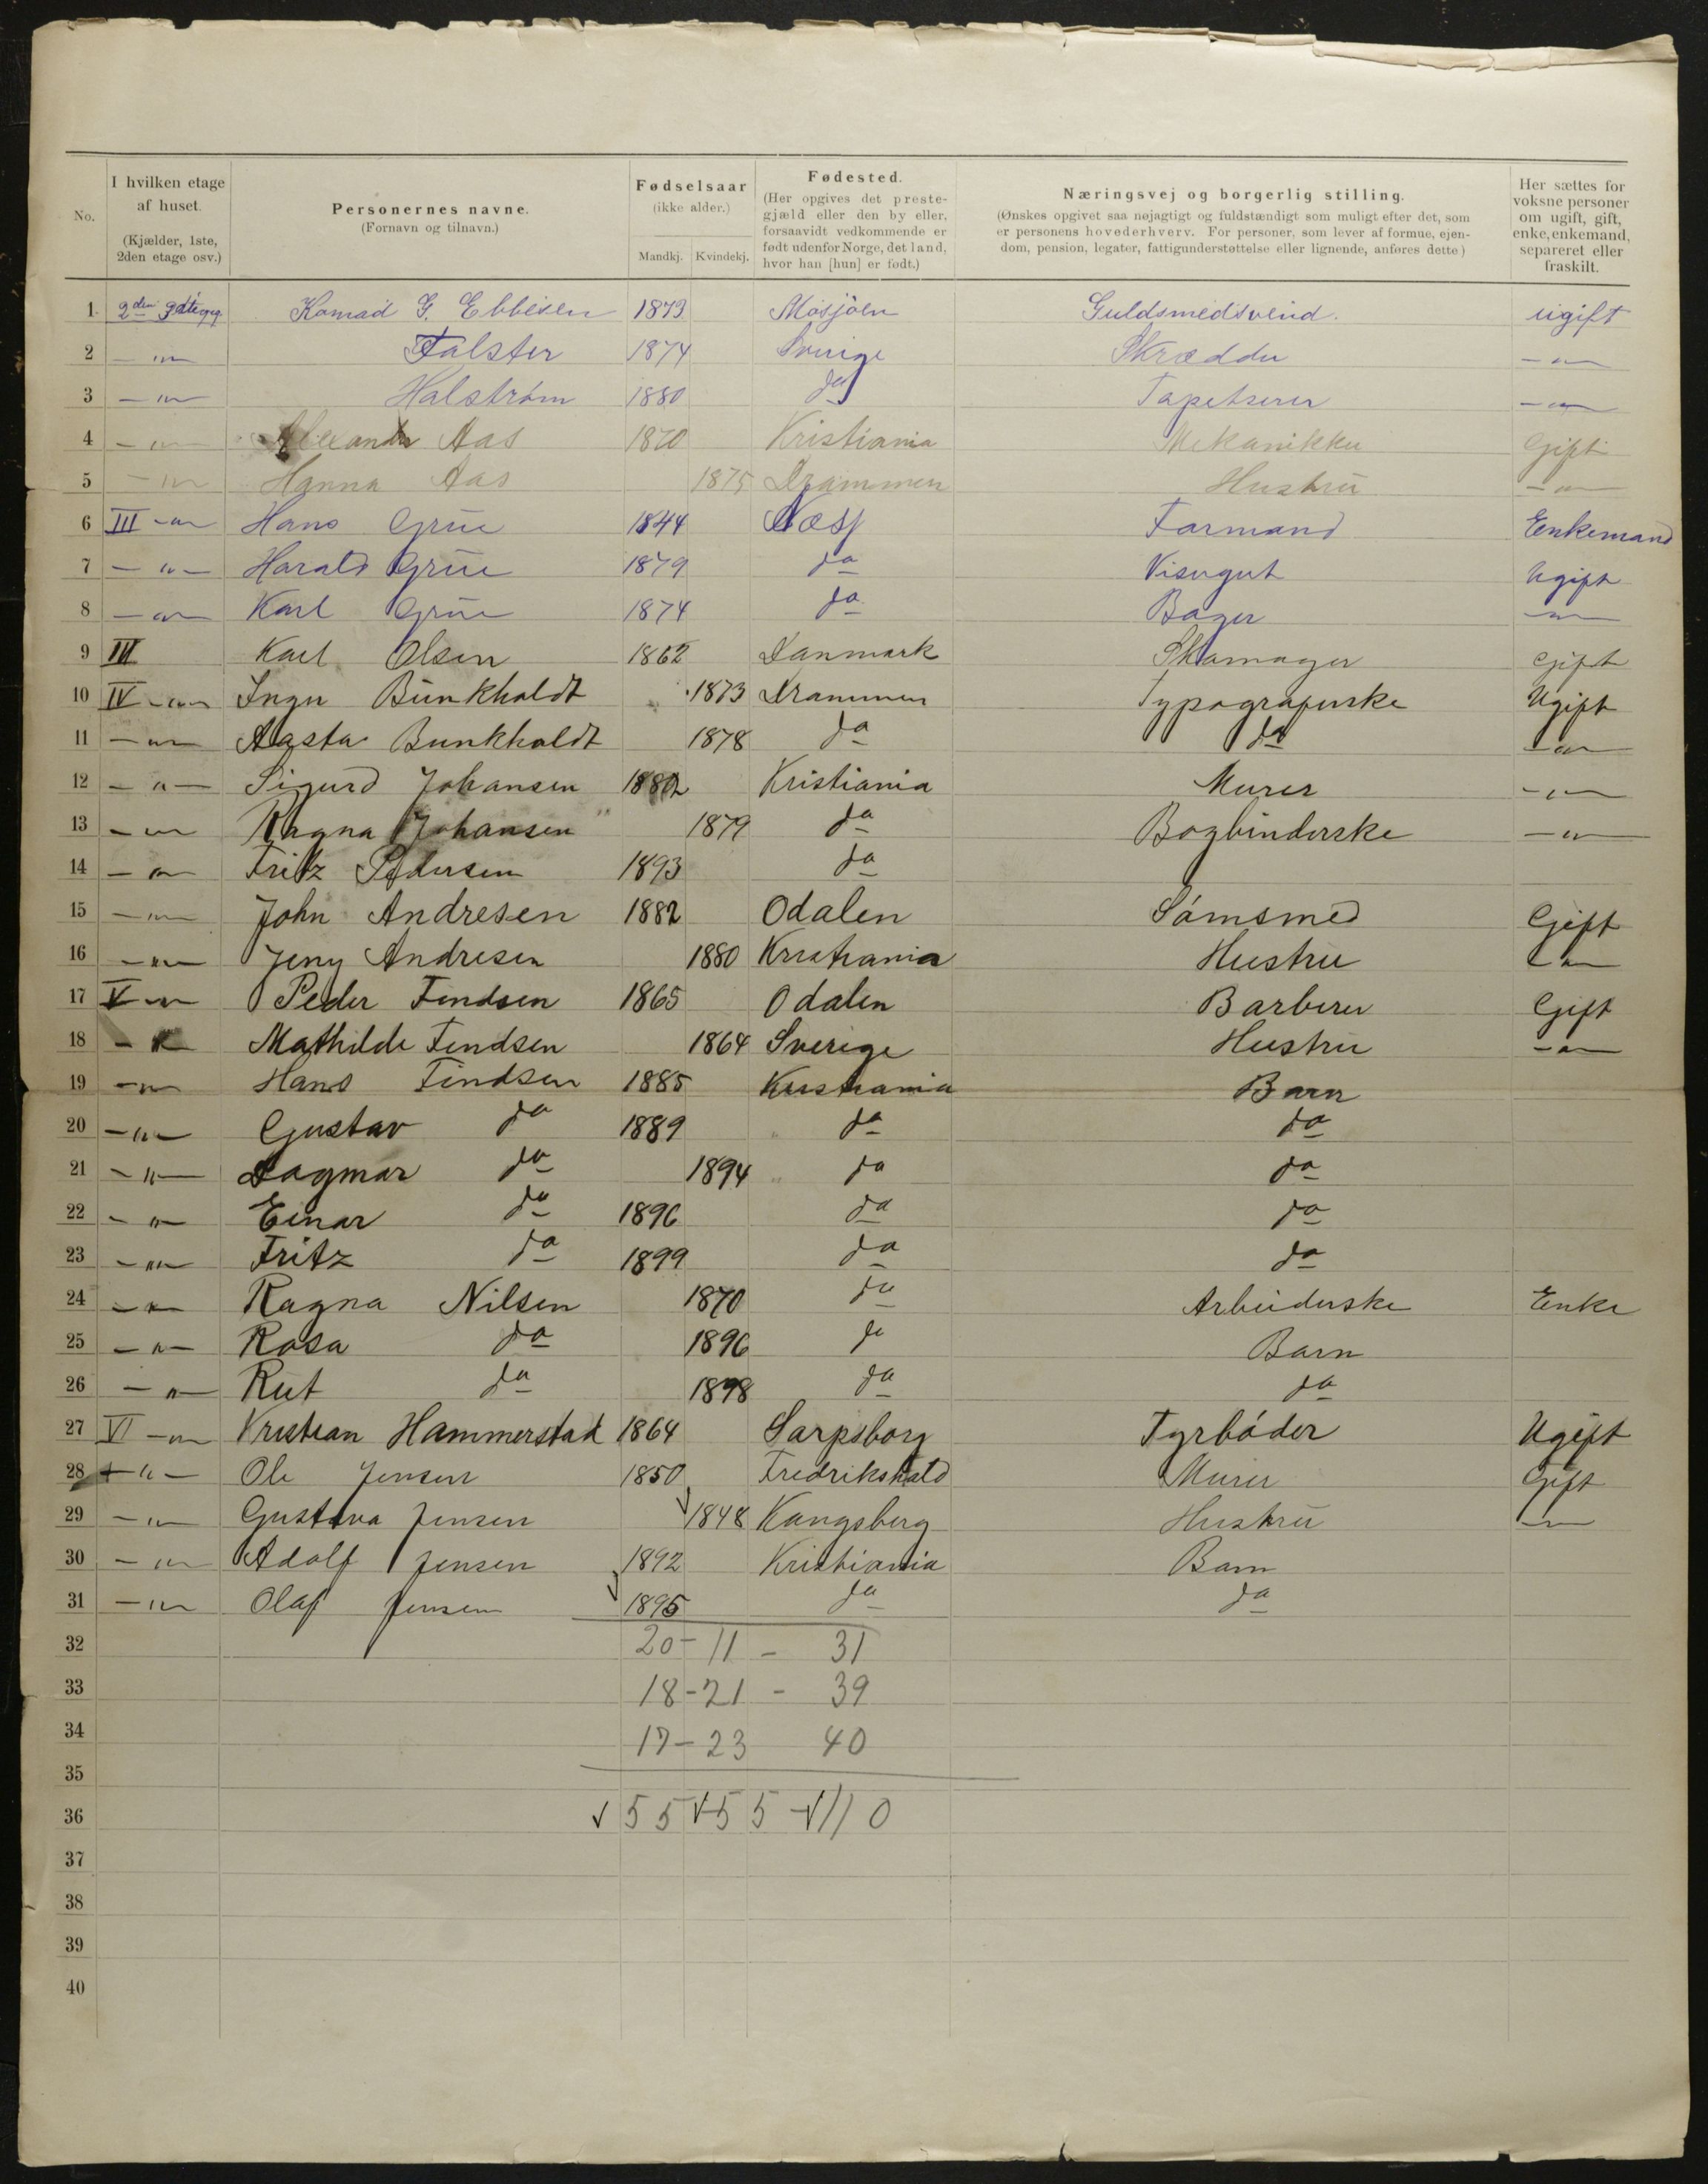 No. I hvilken etage af huset. (Kjælder, 1ste, 2den etage osv.) Personernes navne. (Fornavn og tilnavn.) Fødselsaar (ikke alder.) Mandkj. Kvindekj. Fødested. (Her opgives det prestegjæld eller den by eller, forsaavidt vedkommende er født udenfor Norge, det land, hvor han [hun] er født.) Næringsvej og borgerlig stilling. (Ønskes opgivet saa nøjagtigt og fuldstændigt som muligt efter det, som er personens hovederhverv. For personer, som lever af formue, ejendom, pension, legater, fattigunderstøttelse eller lignende, anføres dette) Her sættes for voksne personer om ugift, gift, enke, enkemand, separeret eller fraskilt.
1 2den Konrad G. Ebbesen 1879 Mosjöen Guldsmedsvend. ugift
2 — " — Falster 1874 Sverige Skrædder — " —
3 — " — Halström 1880 do Tapetserer — " —
4 — " — Alexander Aas 1870 Kristiania Mekanikker Gift
5 — " — Hanna Aas 1875 Drammen Hustru — " —
6 III — " — Hans Grüe 1844 Næsj Formand Enkemand
7 — " — Harald Grüe 1879 do Visergut Ugift
8 — " — Karl Grüe 1874 do Bager — " —
9 III Karl Olsen 1862 Danmark Skomager Gift
10 IV — " — Inga Bunkholdt 1873 Drammen Typograferske Ugift
11 — " — Aasta Bunkholdt 1878 do do — " —
12 — " — Sigurd Johansen 1882 Kristiania Murer — " —
13 — " — Ragna Johansen 1879 do Bogbinderske — " —
14 — " — Fritz Pedersen 1893 do
15 — " — John Andresen 1882 Odalen Sömsmed Gift
16 — " — Jeny Andresen 1880 Kristiania Hustru — " —
17 V — " — Peder Findsen 1865 Odalen Barberer Gift
18 — " — Mathilde Findsen 1864 Sverige Hustru — " —
19 — " — Hans Findsen 1885 Kristiania Barn
20 — " — Gustav do 1889 do do
21 — " — Dagmar do 1894 do do
22 — " — Einar do 1896 do do
23 — " — Fritz do 1899 do do
24 — " — Ragna Nilsen 1870 do Arbeiderske Enke
25 — " — Rosa do 1896 do Barn
26 — " — Rut do 1898 do do
27 VI — " — Kristian Hammerstad 1864 Sarpsborg Fyrböder Ugift
28 — " — Ole Jensen 1850 Fredrikshald Murer Gift
29 — " — Gustava Jensen 1848 Kongsberg Hustru — " —
30 — " — Adolf Jensen 1892 Kristiania Barn
31 — " — Olaf Jensen 1895 do do
32 20 - 11 - 31
33 18 - 21 - 39
34 17 - 23 40
35
36 ✓ 55 ✓ 55 - ✓ 110
37
38
39
40